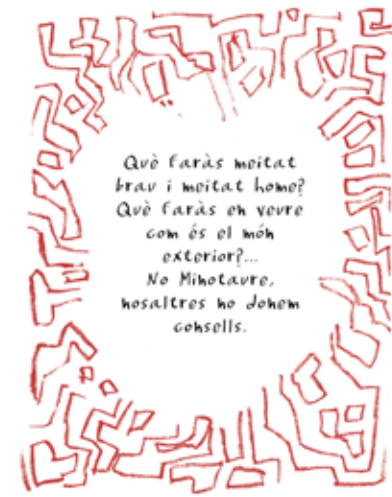 Què faràs meitat
brau i meitat home?
Què faràs en veure
com és el món
exterior?...
No Minotaure,
nosaltres no donem
consells.